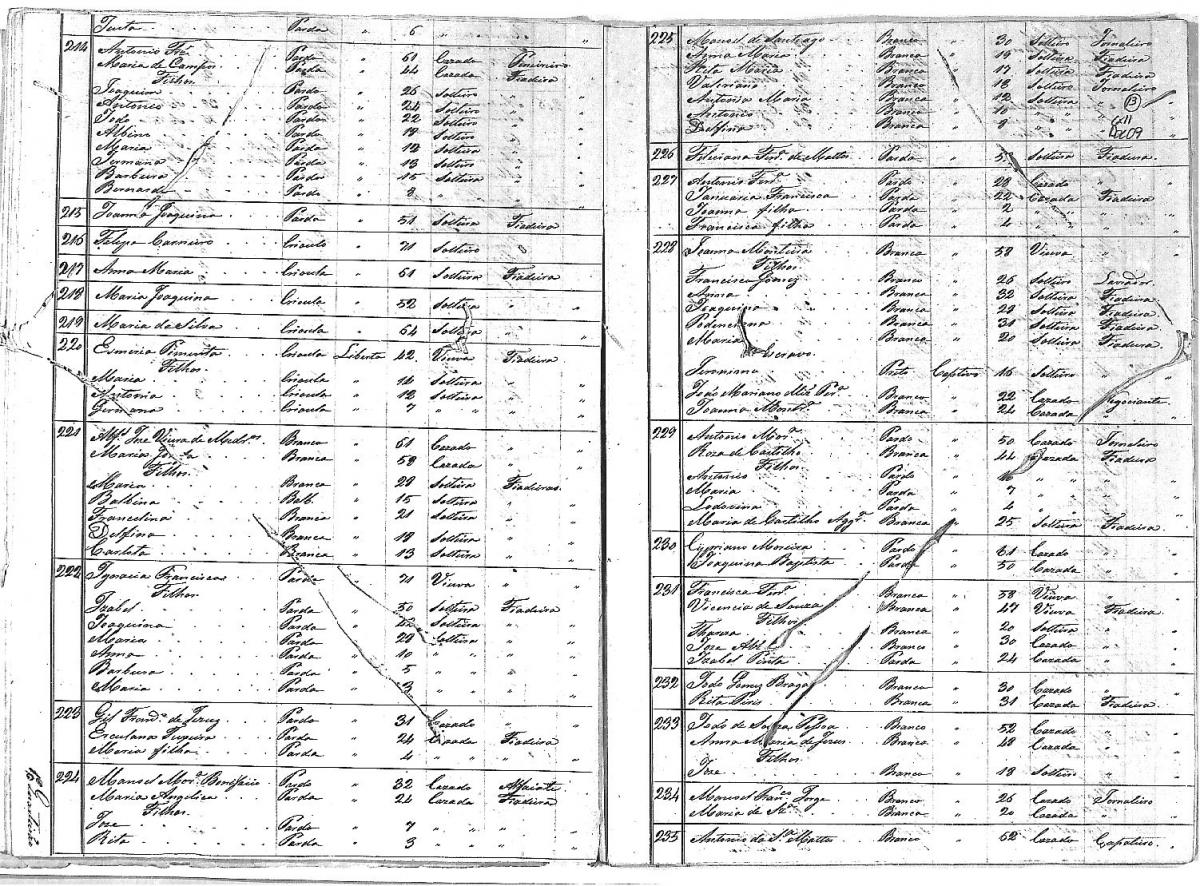 Justa Parda " 6 " "
214 Antonio Joé Pardo " 61 Cazado
Maria de Campos Parda " 44 Cazada Fiadeira
Filhos
Joaquim Pardo " 26 Solteiro "
Antonio Pardo " 24 Solteiro "
João Pardo " 22 Solteiro "
Albino Pardo " 19 Solteiro "
Maria Parda " 12 Solteira "
Germana Parda " 13 Solteira "
Barbara Parda " 15 Solteira "
Bernardo Pardo " 3 " "
215 Joanna Joaquina Parda " 51 Solteira Fiadeira
216 Felipe Carneiro Crioulo " 71 Solteiro "
217 Anna Maria Crioula " 61 Solteira Fiadeira
218 Maria Joaquina Crioula " 52 Solteira "
219 Maria da Silva Crioula " 64 Solteira "
220 Esmeria Pimenta Crioula Liberta 42 Viuva Fiadeira
Filhos
Maria Crioula " 14 Solteira "
Antonia Crioula " 12 Solteira "
Germana Crioula " 7 " "
221 Alfs José Vieira de Medros Branco " 61 Cazado
Maria Branca " 58 Cazada "
Filhos
Maria Branca " 29 Solteira Fiadeiras
Balbina " 15 Solteira "
Francelina Branca " 21 Solteira "
Delfina Branca " 18 Solteira "
Carlota Branca " 13 Solteira "
222 Ignacia Francisca Parda " 71 Viuva "
Filhos
Izabel Parda " 50 Solteira Fiadeira
Joaquina Parda " Solteira "
Maria Parda " 29 Solteira "
Anna Parda " 10 " "
Barbara Parda " 5 " "
Maria Parda " 3 " "
223 Gil Frando de Jezuz Pardo " 31 Cazado "
Erculana Teixeira Parda " 24 Cazada Fiadeira
Maria filha Parda " 4 " "
224 Manoel Mora Bonifacio Pardo " 32 Cazado Alfaiate
Maria Angelica Parda " 24 Cazada Fiadeira
Filhos
Joze Pardo " 7 " "
Rita Parda " 3 " "
225 Manoel de Santiago Branco " 30 Solteiro Jornaleiro
Anna Maria Branca " 19 Solteira Fiadeira
Rita Maria Branca " 17 Solteira Fiadeira
Valeriano Branco " 18 Solteiro Jornaleiro
Antonia Maria Branca " 12 Solteira "
Antonio Branco " 10 " "
Delfina Branca " 9 " "
13
226 Feliciana Ferra de Mattos Parda " Solteira Fiadeira
227 Antonio Ferra Pardo " 28 Cazado "
Januaria Francisca Parda " 22 Cazada Fiadeira
Joanna filha Parda " 2 " "
Francisca filha Parda " 4 " "
228 Joanna Monteira Branca " 58 Viuva "
Filhos
Francisco Gomez Branco " 26 Solteiro Lavrador
Anna Branca " 32 Solteira Fiadeira
Joaquina Branca " 29 Solteira Fiadeira
Branca " 31 Solteira Fiadeira
Maria Branca " 20 Solteira Fiadeira
Escravo
Jeronimo Preto Captivo 16 Solteiro "
João Mariano Branco " 22 Cazado Negociante
Joanna Montra Branca " 24 Cazada
229 Antonio Mora Pardo " 50 Cazado Jornaleiro
Roza de Castilho Parda " 44 Cazada Fiadeira
Filhos
Antonio Pardo " " "
Maria Parda " 7 " "
Ludovina Parda " 4 " "
Maria de Castilho Aggra Branca " 25 Solteira Fiadeira
230 Cypriano Moreira Pardo " 61 Cazado
Joaquina Baptista Parda " 50 Cazada "
231 Francisca Ferra Branca " 58 Viuva "
Vicencia de Souza Branca " 47 Viuva Fiadeira
Filhos
Branca " 20 Solteira "
Joze Branco " 30 Cazado "
Izabel Pinta Parda " 24 Cazada "
232 João Gomez Braga Branco " 30 Cazado "
Rita Branca " 31 Cazada Fiadeira
233 João de Branco " 52 Cazado "
Anna Maria de Jezus Branca " 48 Cazada "
Filhos
Joze Branco " 18 Solteiro "
234 Manoel Franco Jorge Branco " 26 Cazado Jornaleiro
Maria de Branca " 20 Cazada "
235 Antonio da Sa Mattos Branco " 62 Cazado